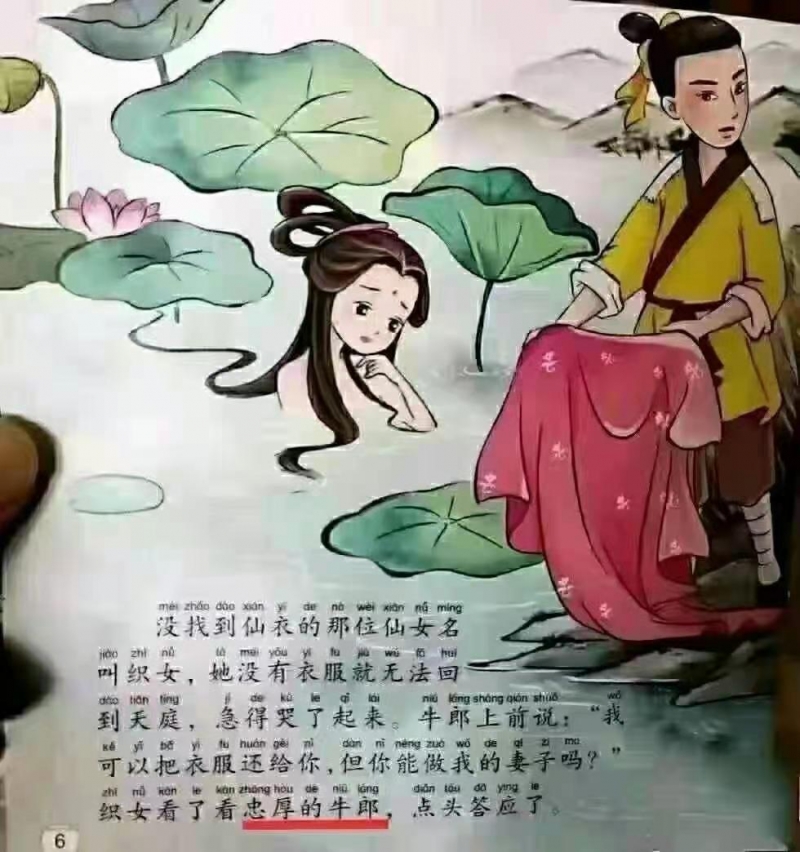 méi zhǎo dào xiān yī de nà wèi xiān nǚ míng
没找到仙衣的那位仙女名
jiào zhī nǚ tā méi yǒu yī fu jiù wú fǎ huí
叫织女，她没有衣服就无法回
dào tiān tíng jí de kū le qǐ lái niú láng shàng qián shuō wǒ
到天庭，急得哭了起来。牛郎上前说：“我
kě yǐ bǎ yī fu huán gěi nǐ dàn nǐ néng zuò wǒ de qī zi ma
可以把衣服还给你，但你能做我的妻子吗？”
zhī nǚ kàn le kàn zhōng hòu de niú láng diǎn tóu dā ying le
织女看了看忠厚的牛郎，点头答应了。
6